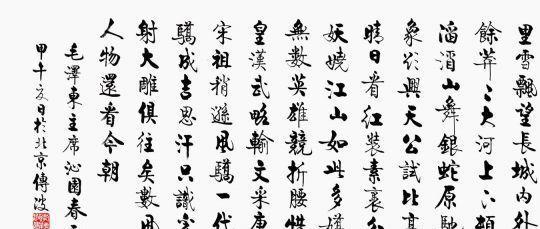 里雪飄望長城内外
餘莽〻大河上下頓
滔滔山舞銀蛇原馳
象欲與天公試比高
晴日看紅裝素裹分
妖嬈江山如此多嬌
無數英雄競折腰惜
皇漢武略輸文采唐
宋祖稍遜風騷一代
驕成吉思汗只識
射大雕俱往矣數風
人物還看今朝
毛澤東主席沁園春
甲午夏日於北京傅波